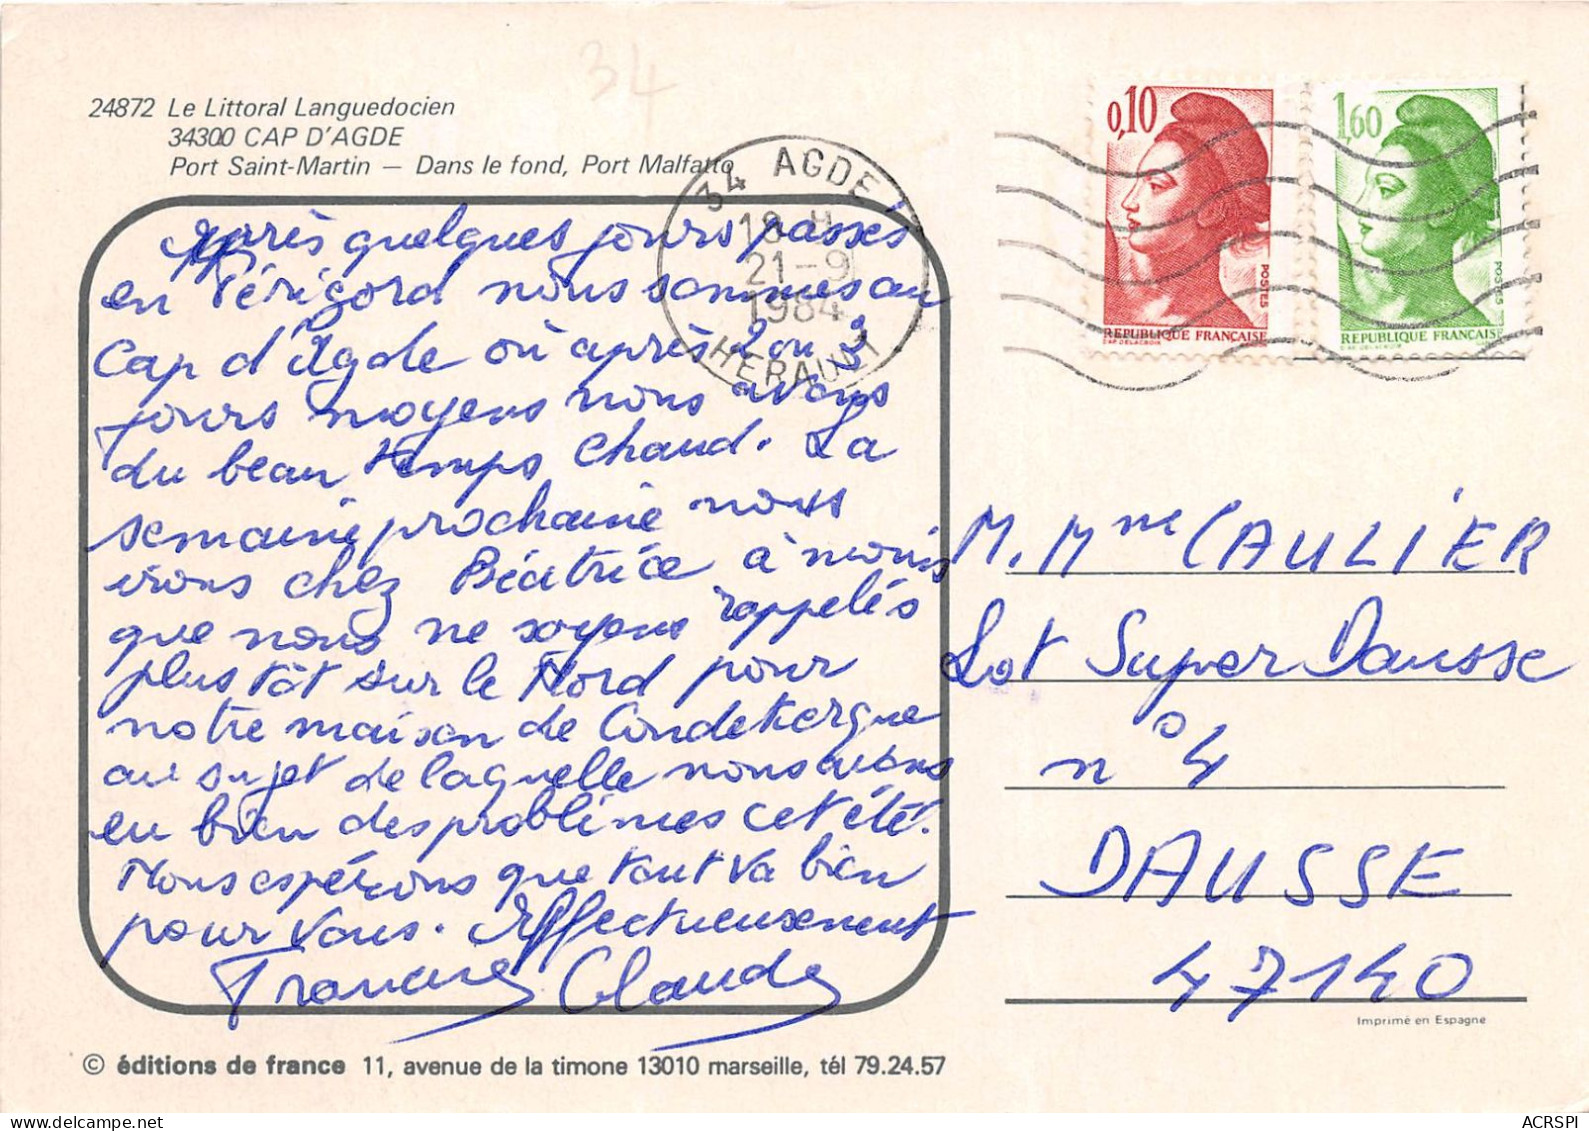 34
24872 Le Littoral Languedocien
34300 CAP D'AGDE
Port Saint-Martin — Dans le fond, Port Malfatto
34 AGDE
18 H
21-9
1984
HERAULT
0,10
POSTES
REPUBLIQUE FRANÇAISE
D'AP. DELACROIX
1,60
POSTES
REPUBLIQUE FRANÇAISE
D'AP. DELACROIX
Après quelques jours passés
en Périgord nous sommes au
Cap d'Agde où après 2 ou 3
jours moyens nous avons
du beau temps chaud. La
semaine prochaine nous
irons chez Béatrice à moins
que nous ne soyons rappelés
plus tôt sur le Nord pour
notre maison de Coudekerque
au sujet de laquelle nous avons
eu bien des problèmes cet été.
Nous espérons que tout va bien
pour vous. Affectueusement
Francine Claude
M. Mme CAULIER
Lot Super Dausse
n° 4
DAUSSE
47140
Imprimé en Espagne
© éditions de france 11, avenue de la timone 13010 marseille, tél 79.24.57
ACRSPI